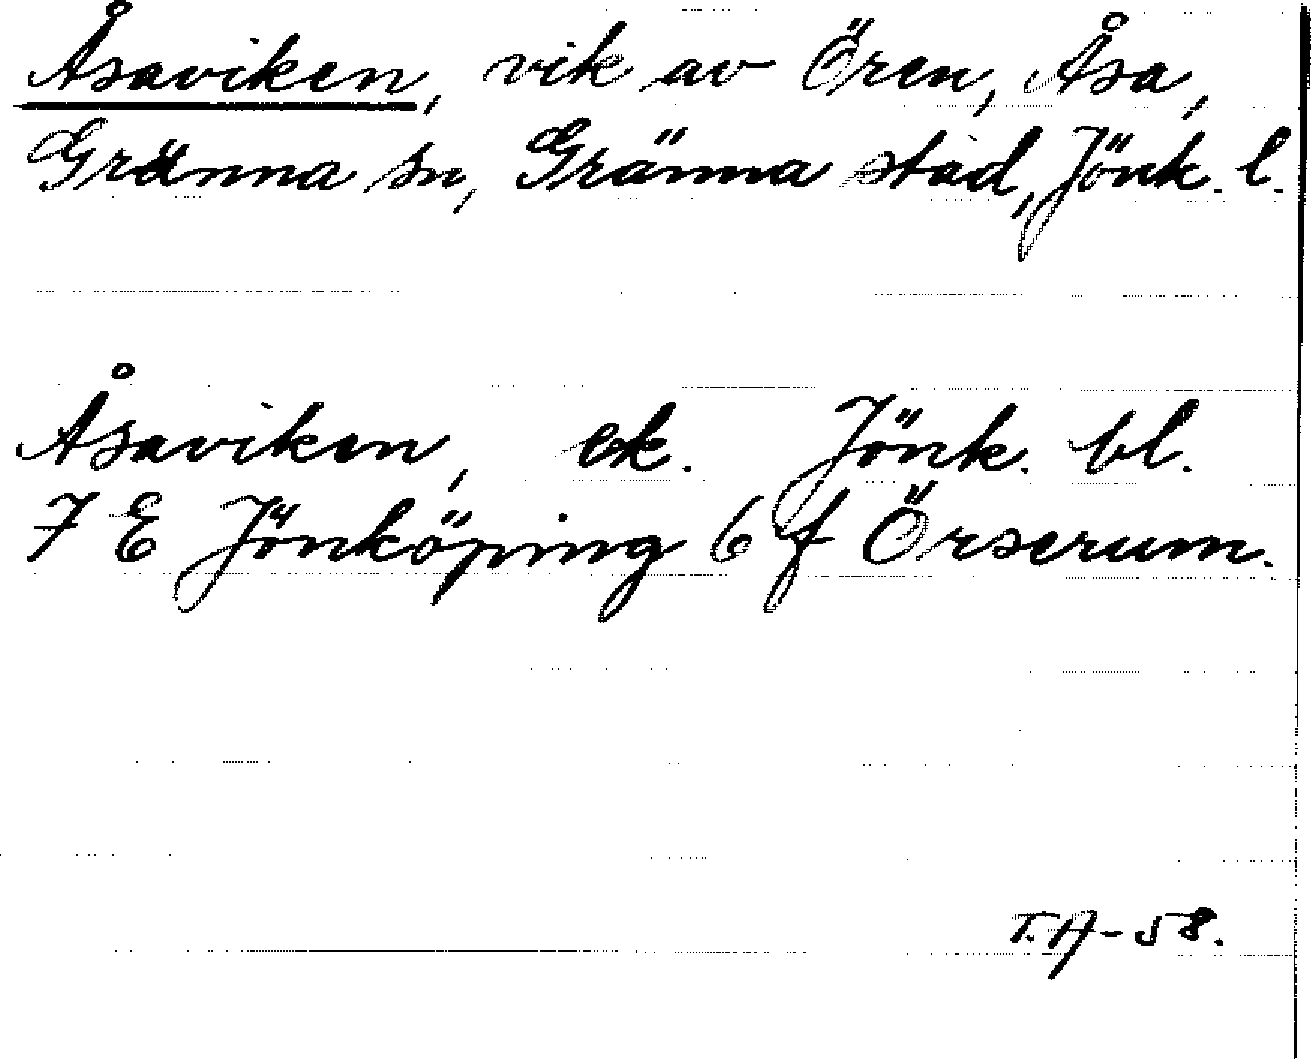 Åsaviken, vik av Ören, Åsa,
Gränna sn, Gränna stad, Jönk. l.
Åsaviken, ek. Jönk. bl.
7 E Jönköping 6 f Örserum.
T.A-58.